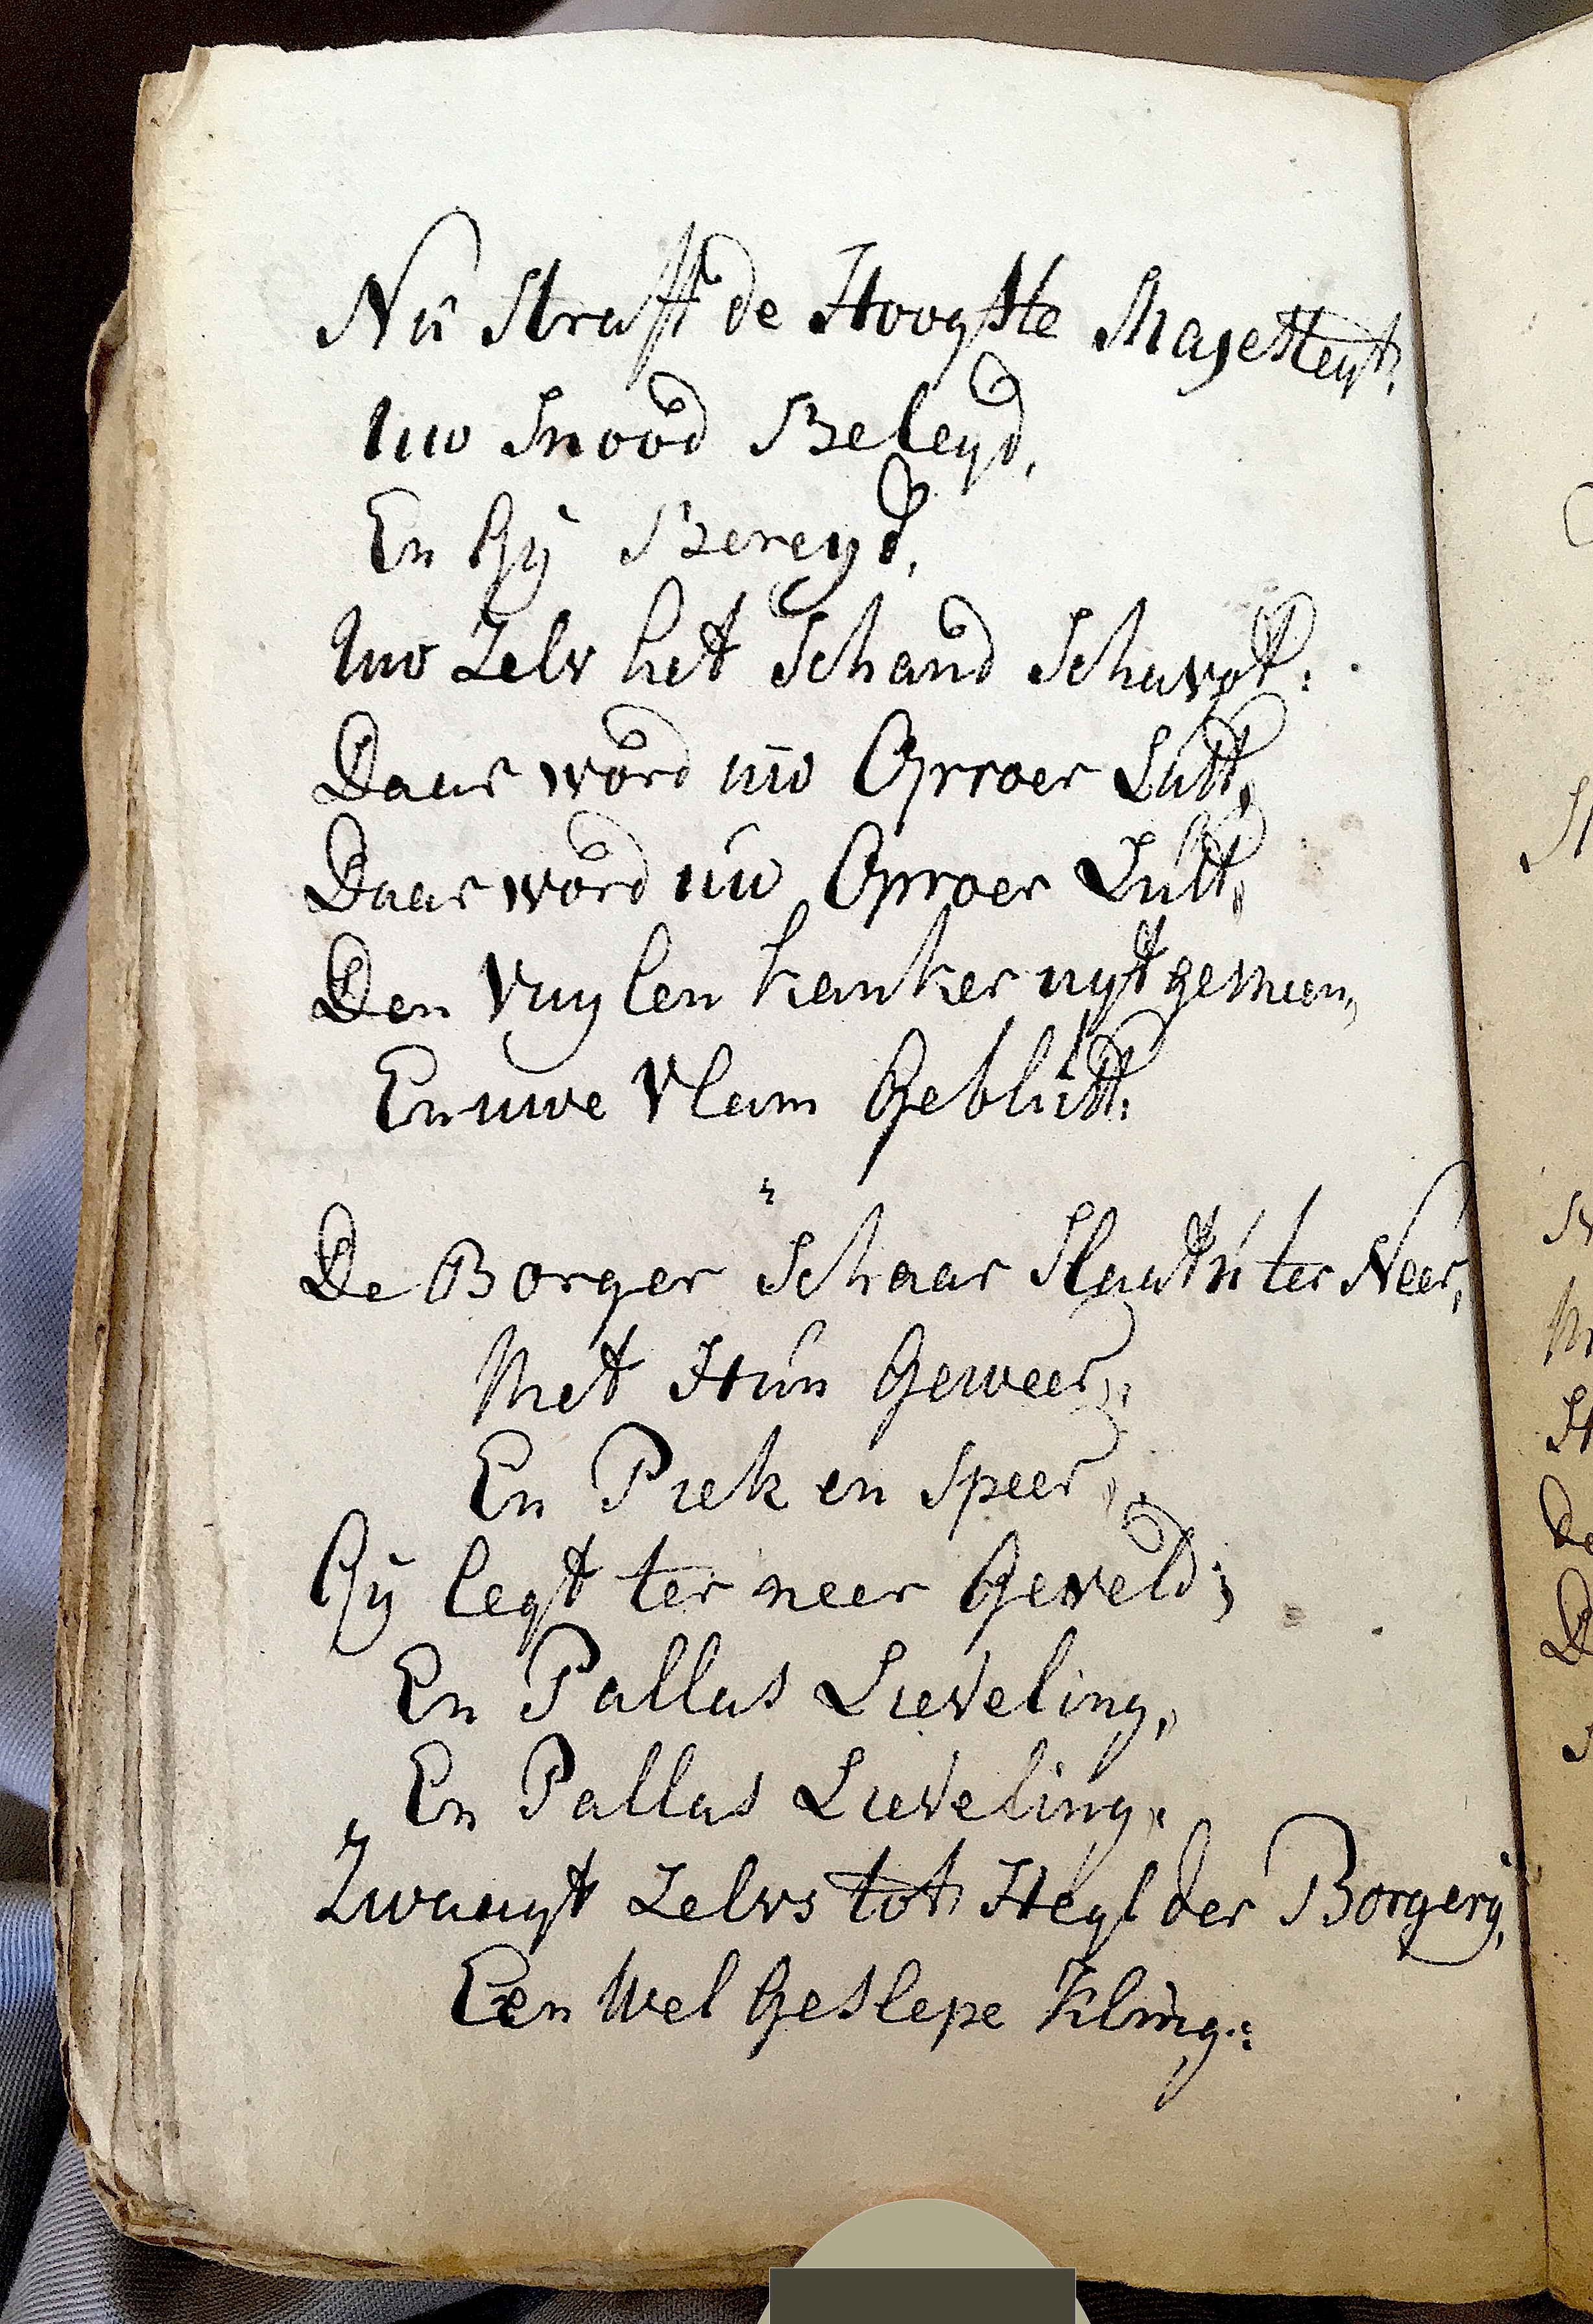 Nu Straft de Hoogste Majesteyt,
Uw Snood Beleyd,
En Gij Bereyd,
Uw Zelv het Schand Schavot:
Daar word uw Oproer Lust,
Daar word uw Oproer Lust,
Den Vuylen Kanker uytgesneen,
En uwe Vlam Geblust:
2
De Borger Schaar Slaat u ter Neer,
Met Hun Geweer,
En Piek en Speer,
Gij legt ter neer Geveld;
En Pallas Lieveling,
En Pallas Lieveling,
Zwaayt Zelvs tot Heyl der Borgerij,
Een Wel Geslepe Kling: